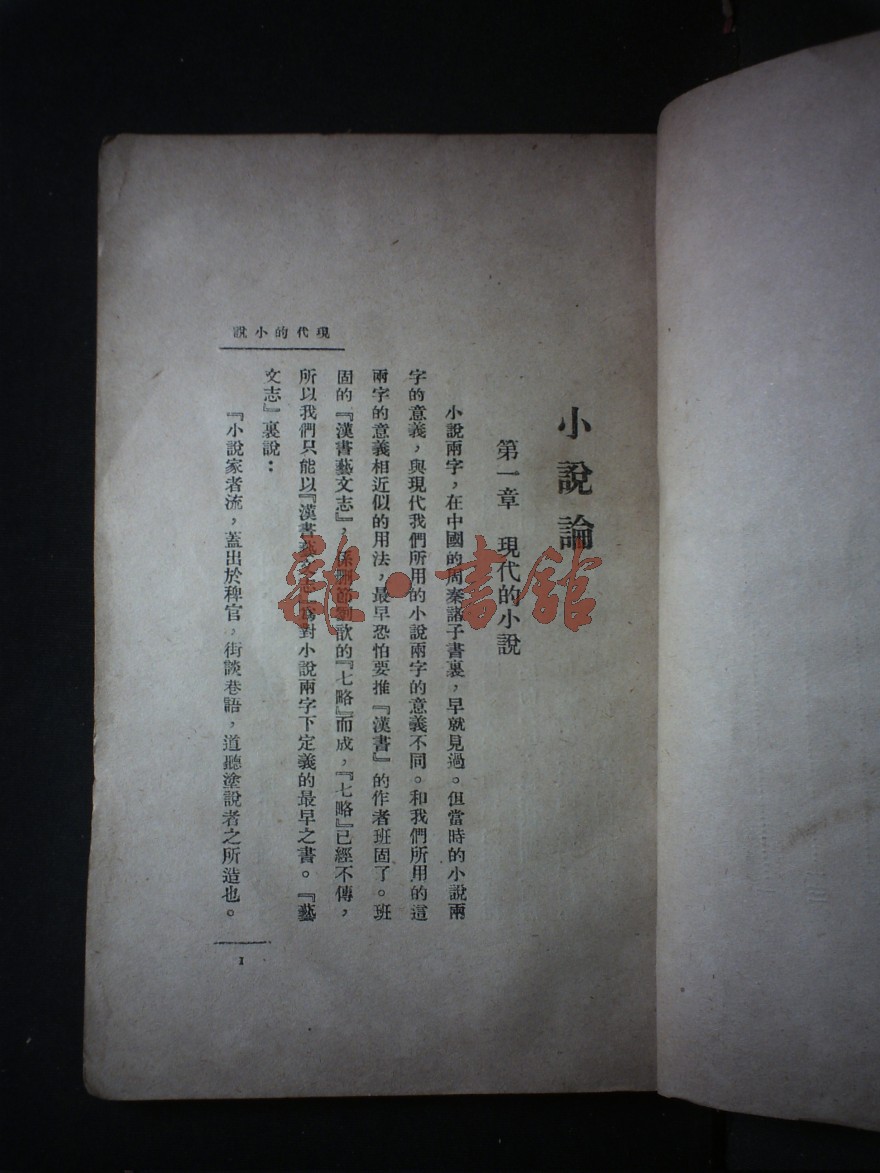 小說論
第一章　現代的小說
小說兩字，在中國的周秦諸子書裏，早就見過。但當時的小說兩
字的意義，與現代我們所用的小說兩字的意義不同。和我們所用的這
兩字的意義相近似的用法，最早恐怕要推『漢書』的作者班固了。班
固的『漢書藝文志』，係刪節劉歆的『七略』而成，『七略』已經不傳，
所以我們只能以『漢書藝文志』為對小說兩字下定義的最早之書。『藝
文志』裏說：
『小說家者流，蓋出於稗官，街談巷語，道聽塗說者之所造也。
現代的小說
1
雜·書館